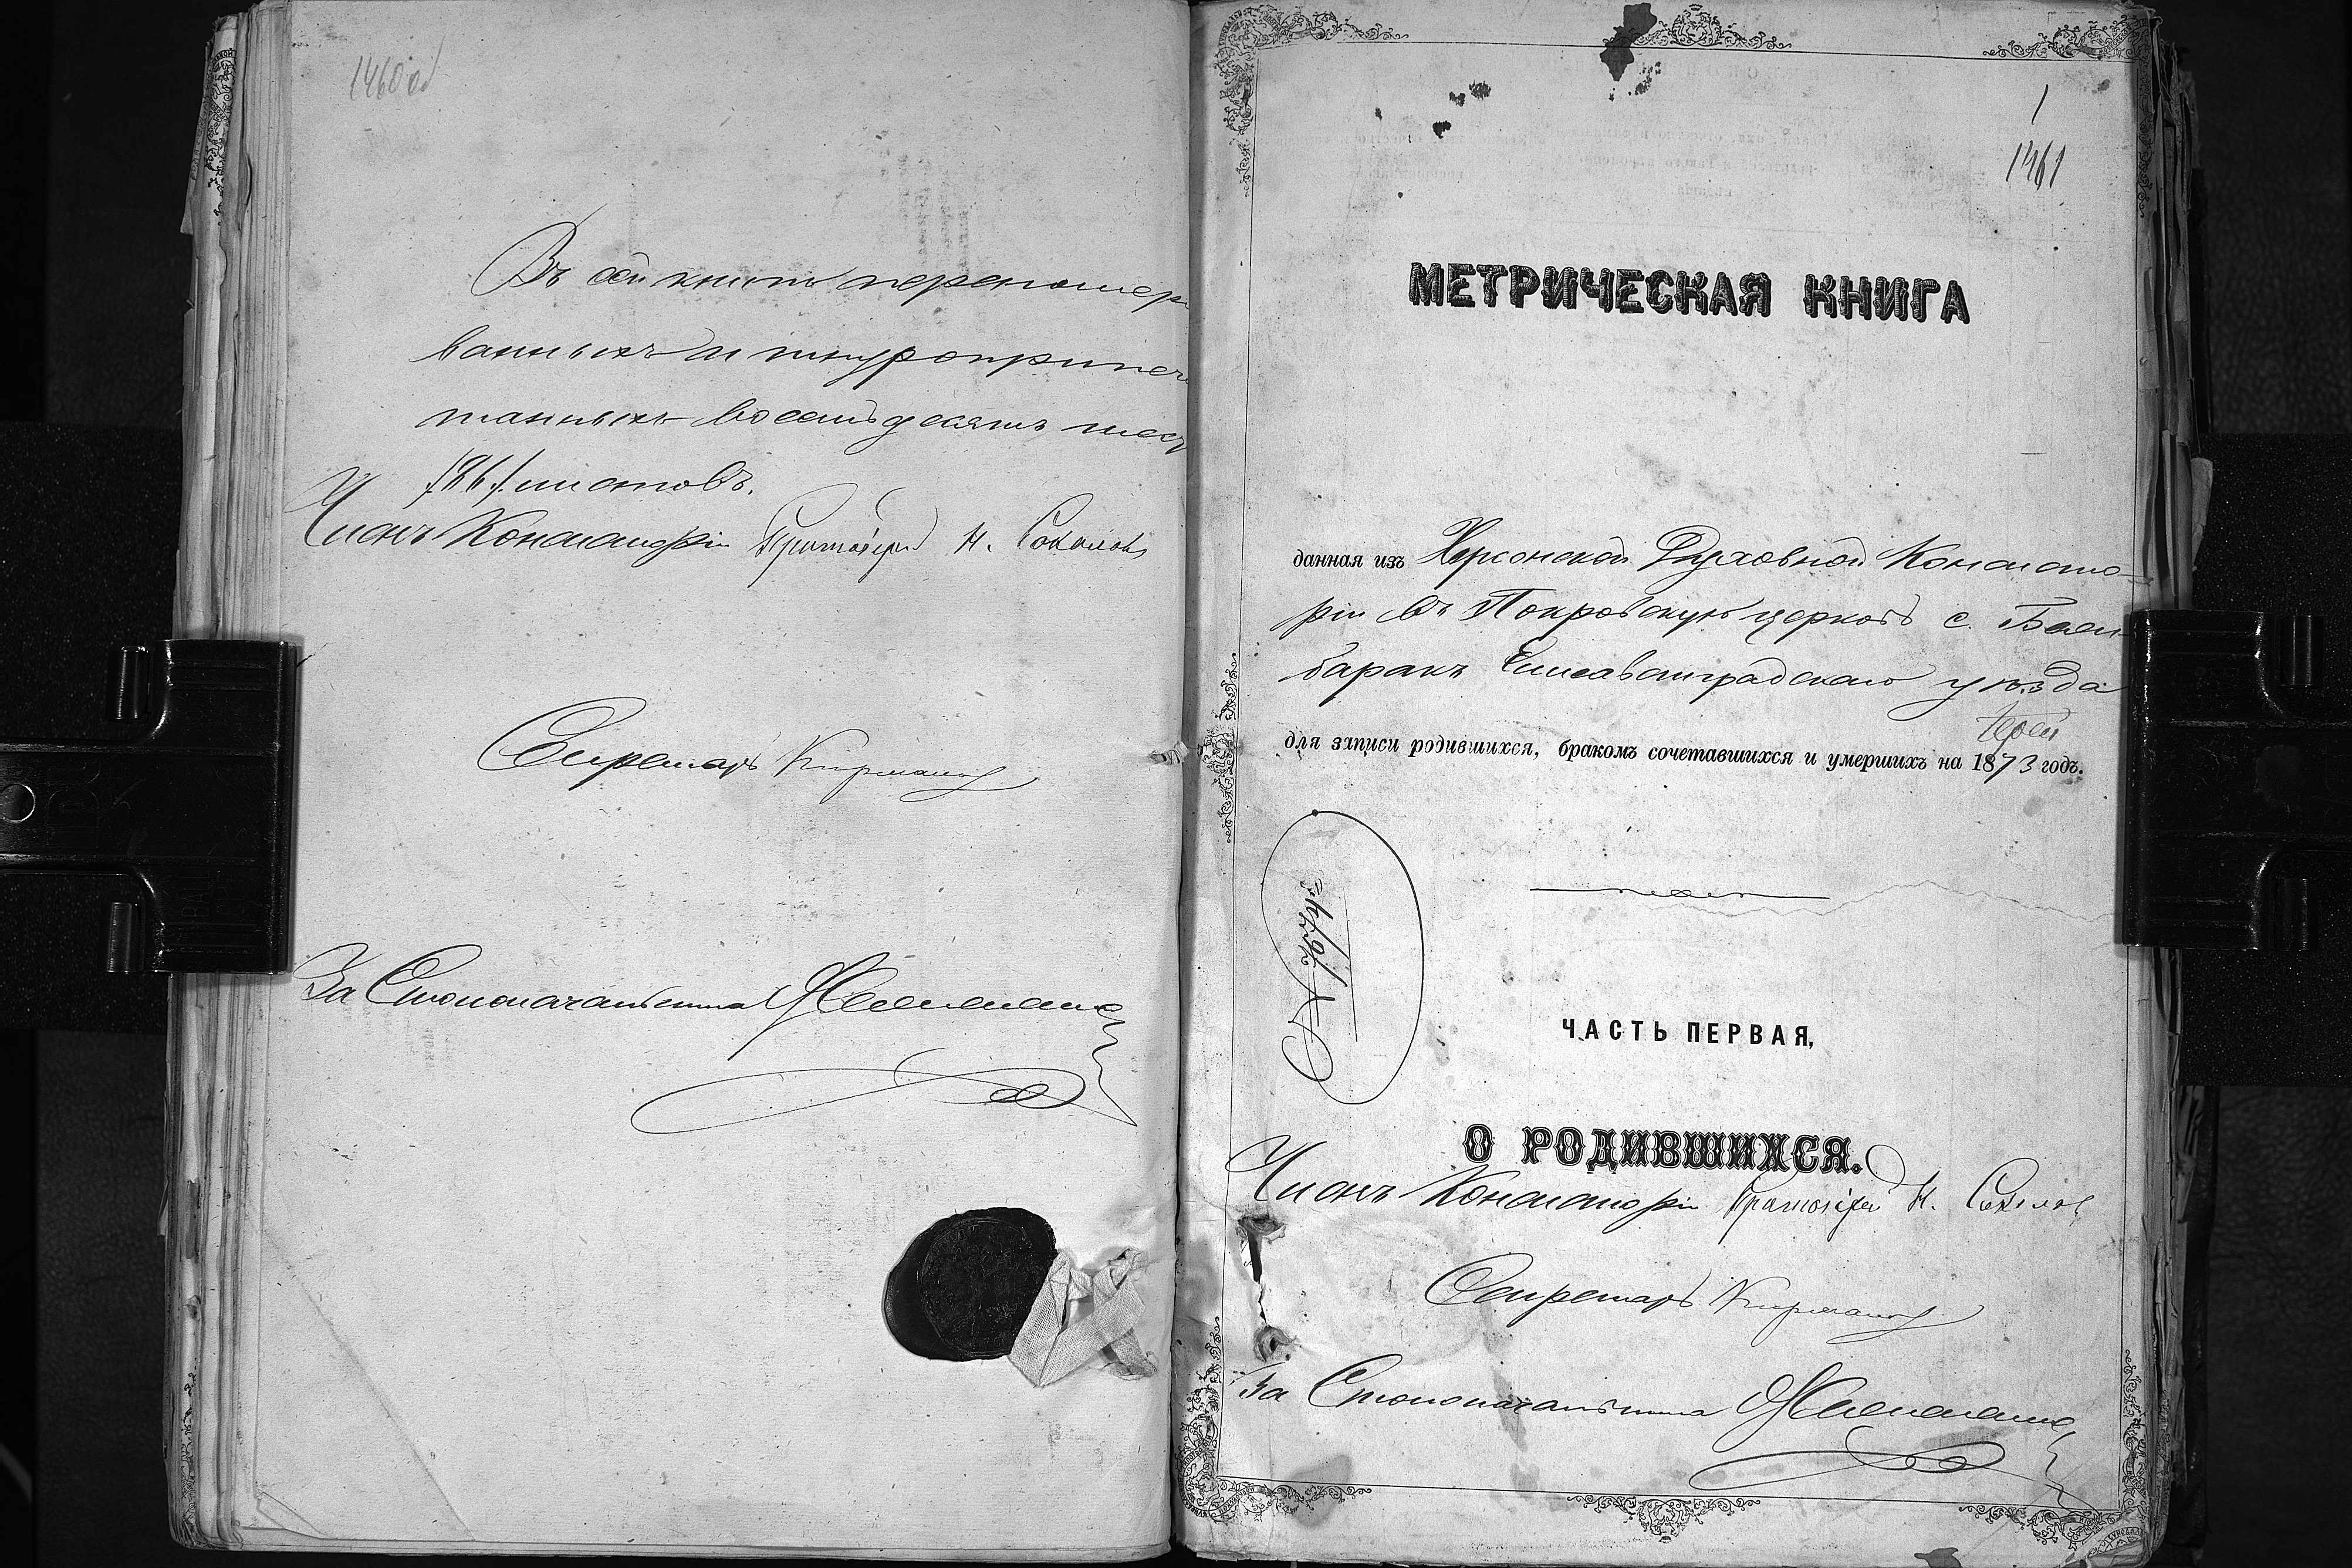 1460 об
Въ сей книгѣ перенумеро
ванныхъ и шнуроприпеча
танныхъ восемьдесятъ шест
/86/ листовъ.
Членъ Консисторіи Протоіерей Н. Соколовъ
Секретарь
За Столоначальника
1
1461
МЕТРИЧЕСКАЯ КНИГА
данная изъ Херсонской Духовной Консисто-
ріи въ Покровскую церковь с. Баш-
баракъ Елисаветградскаго уѣзда
для записи родившихся, бракомъ сочетавшихся и умершихъ на 1873 годъ.
ЧАСТЬ ПЕРВАЯ,
О РОДИВШИХСЯ.
Членъ Консисторіи Протоіерей Н. Соколов
Секретарь
За Столоначальника